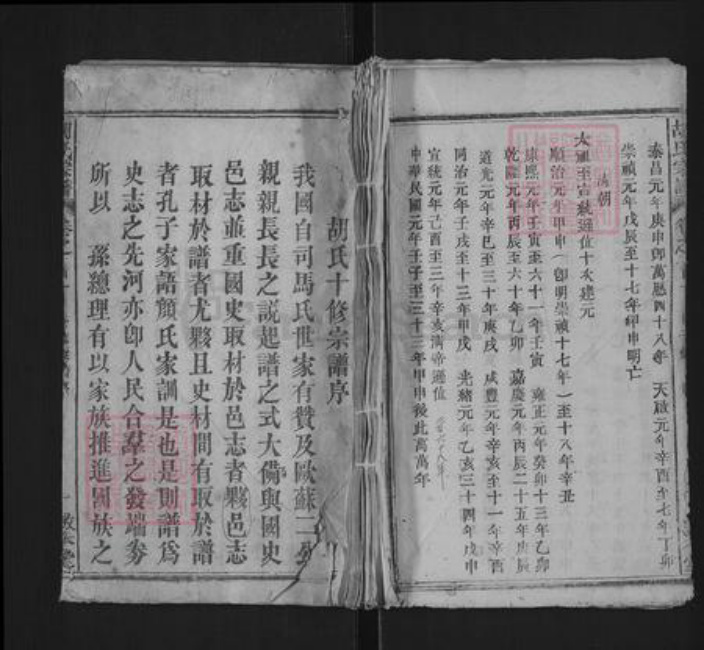 泰昌元年庚申卽萬曆四十八年　天啟元年辛酉至七年丁卯
崇禎元年戊辰至十七年甲申明亡
清朝
太祖至宣統遜位十次建元
順治元年甲申(卽明崇禎十七年)至十八年辛丑
康熙元年壬寅至六十一年壬寅　雍正元年癸卯十三年乙卯
乾隆元年丙辰至六十年乙卯　嘉慶元年丙辰二十五年庚辰
道光元年辛巳至三十年庚戌　咸豐元年辛亥至十一年辛酉
同治元年壬戌至十三年甲戌　光緒元年乙亥三十四年戊申
宣統元年己酉至三年辛亥淸帝遜位
中華民國元年壬子至三十三年甲申後此萬萬年
胡氏十修宗譜序
我國自司馬氏世家有贊及歐蘇二公
親親長長之說起譜之式大備與國史
邑志並重國史取材於邑志者夥邑志
取材於譜者尤夥且史材間有取於譜
者孔子家語顏氏家訓是也是則譜爲
史志之先河亦卽人民合羣之發端夯
所以　孫總理有以家族推進國族之